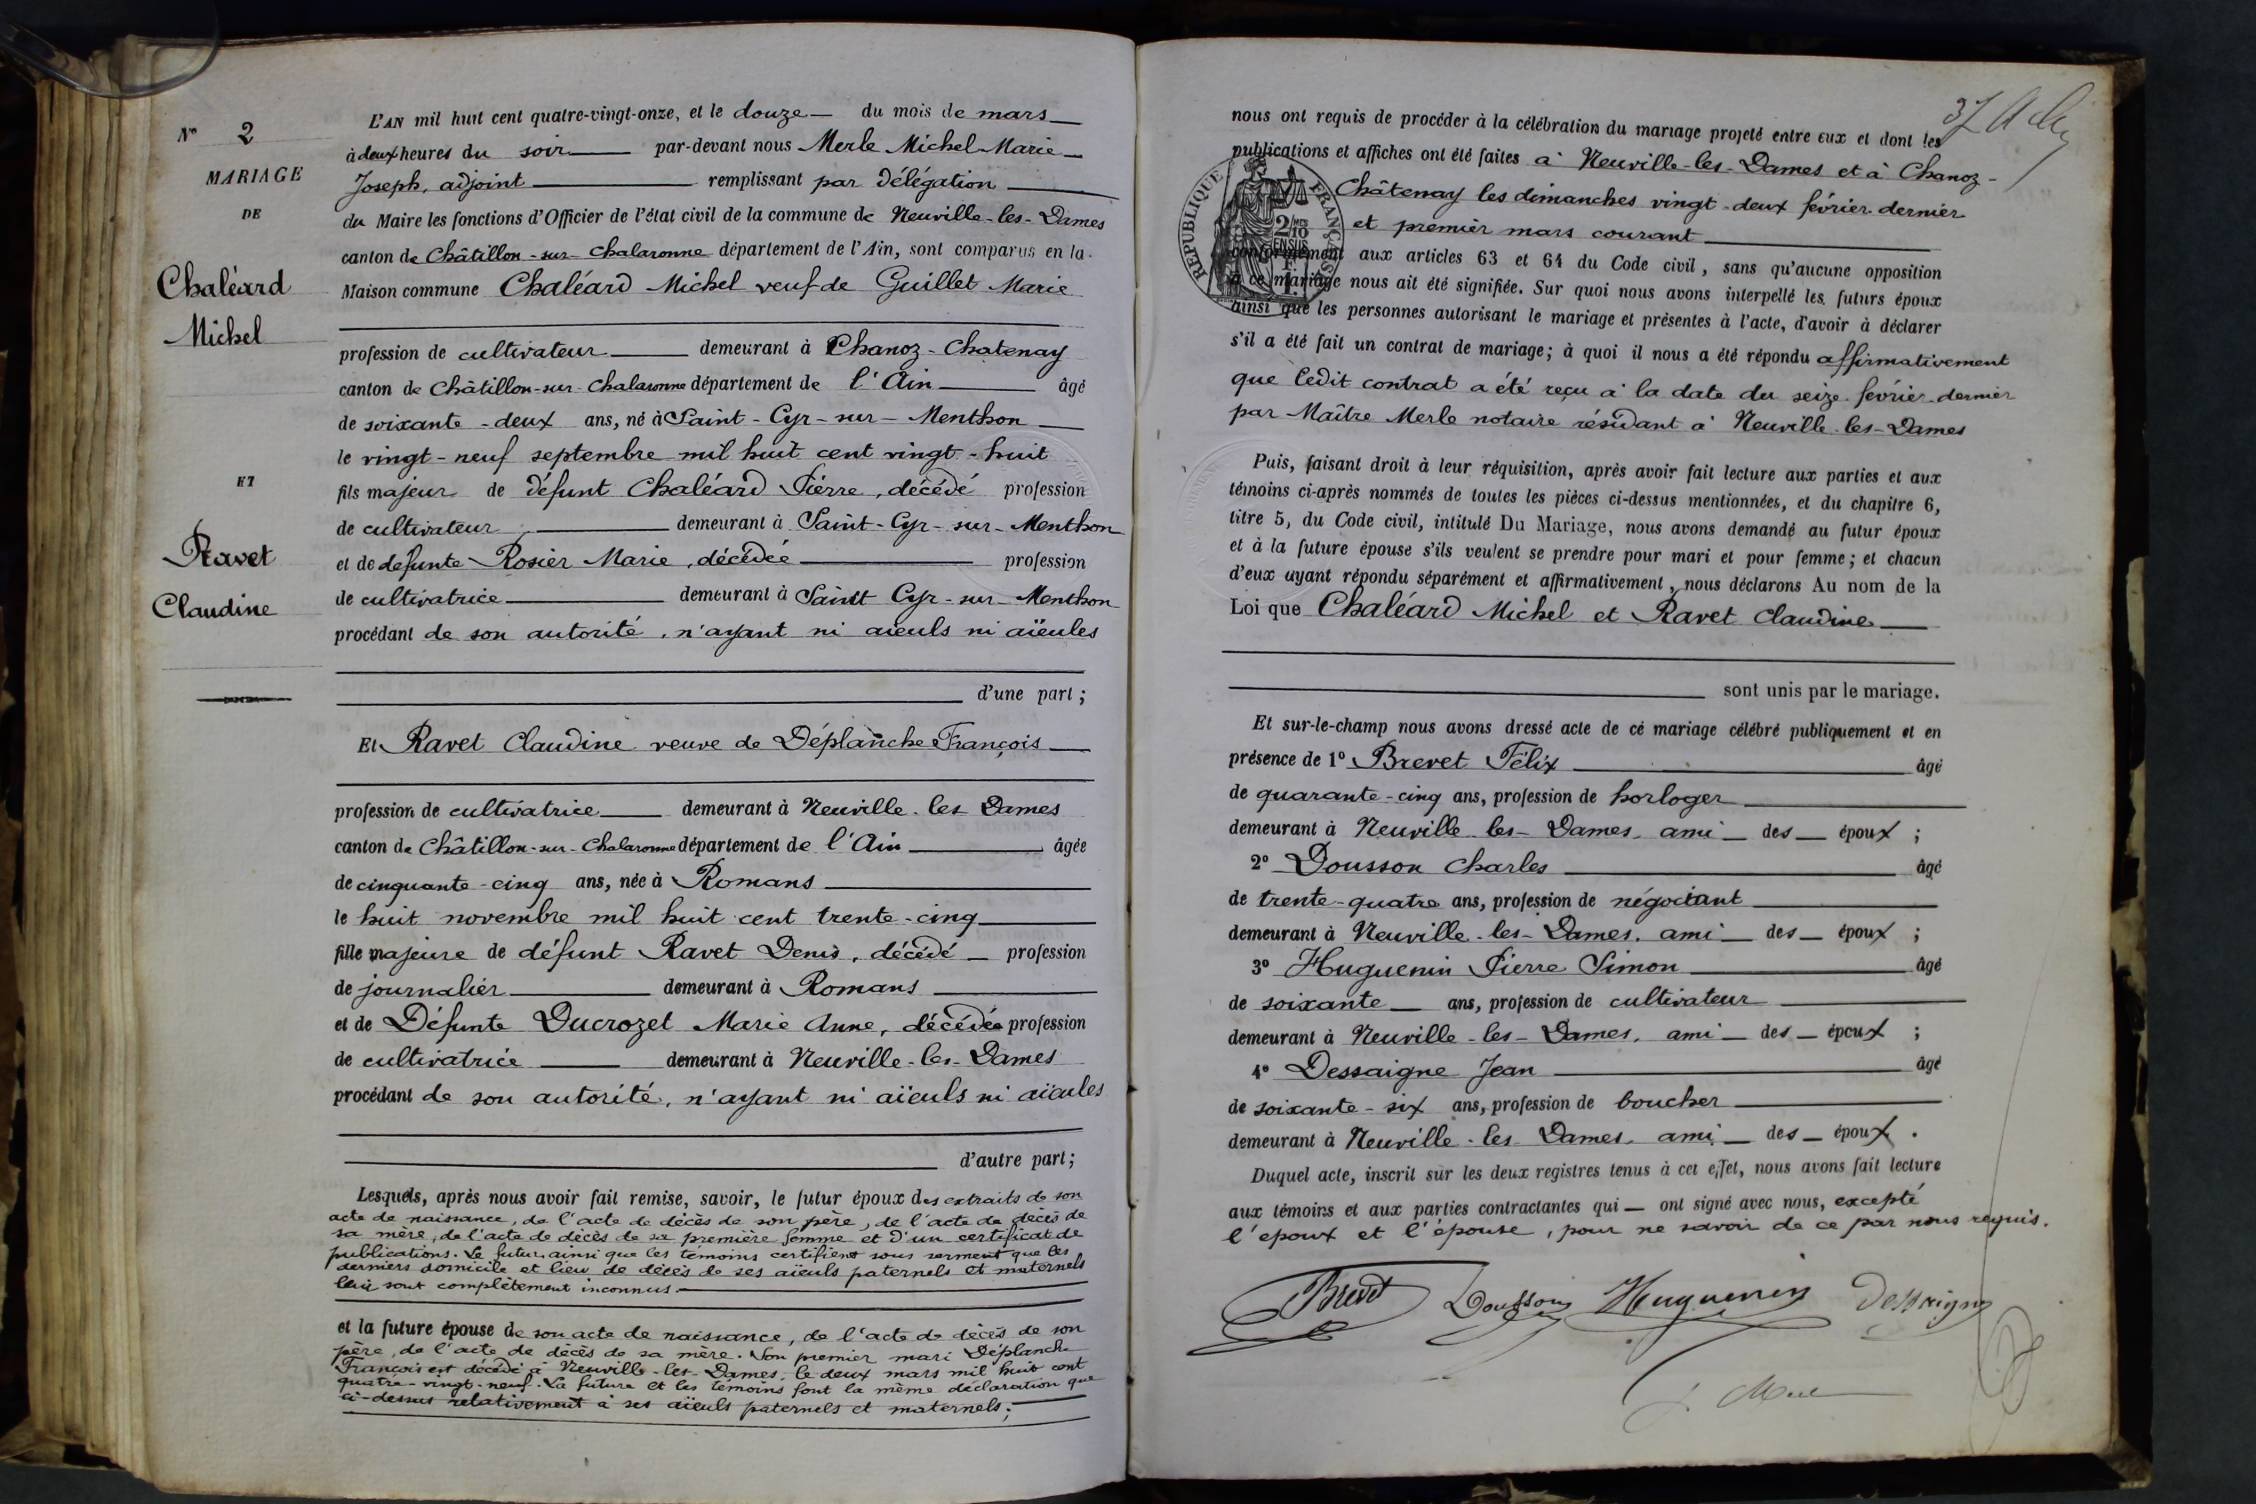 N° 2
MARIAGE
DE
Chaléard
Michel
ET
Ravet
Claudine
L'AN mil huit cent quatre-vingt-onze, et le douze du mois de mars
à deux heures du soir par-devant nous Merle Michel Marie
Joseph, adjoint remplissant par délégation
du Maire les fonctions d'Officier de l'état civil de la commune de Neuville-les-Dames
canton de Châtillon-sur-Chalaronne département de l'Ain, sont comparus en la
Maison commune Chaléard Michel veuf de Guillet Marie
profession de cultivateur demeurant à Chanoz-Chatenay
canton de Châtillon-sur-Chalaronne département de l'Ain âgé
de soixante-deux ans, né à Saint-Cyr-sur-Menthon
le vingt-neuf septembre mil huit cent vingt-huit
fils majeur de défunt Chaléard Pierre, décédé profession
de cultivateur demeurant à Saint-Cyr-sur-Menthon
et de defunte Rosier Marie, décédée profession
de cultivatrice demeurant à Saint Cyr-sur-Menthon
procédant de son autorité, n'ayant ni aïeuls ni aïeules
d'une part;
Et Ravet Claudine veuve de Déplanche François
profession de cultivatrice demeurant à Neuville-les Dames
canton de Châtillon-sur-Chalaronne département de l'Ain âgée
de cinquante-cinq ans, née à Romans
le huit novembre mil huit cent trente-cinq
fille majeure de défunt Ravet Denis, décédé profession
de journalier demeurant à Romans
et de Défunte Ducrozet Marie Anne, décédée profession
de cultivatrice demeurant à Neuville-les-Dames
procédant de son autorité, n'ayant ni aïeuls ni aïeules
d'autre part;
Lesquels, après nous avoir fait remise, savoir, le futur époux des extraits de son
acte de naissance, de l'acte de décès de son père, de l'acte de décès de
sa mère, de l'acte de décès de sa première femme et d'un certificat de
publications. Le futur ainsi que les témoins certifient sous serment que les
derniers domicile et lieu de décès de ses aïeuls paternels et maternels
leur sont complètement inconnus.
et la future épouse de son acte de naissance, de l'acte de décès de son
père, de l'acte de décès de sa mère. Son premier mari Déplanche
François est décédé à Neuville-les-Dames, le deux mars mil huit cent
quatre-vingt-neuf. La future et les témoins font la même déclaration que
ci-dessus relativement à ses aïeuls paternels et maternels;
37
nous ont requis de procéder à la célébration du mariage projeté entre eux et dont les
publications et affiches ont été faites à Neuville-les-Dames et à Chanoz-
Châtenay les dimanches vingt-deux février dernier
et premier mars courant
RÉPUBLIQUE FRANÇAISE
2/10
EN SUS
conformément aux articles 63 et 64 du Code civil, sans qu'aucune opposition
à ce mariage nous ait été signifiée. Sur quoi nous avons interpellé les futurs époux
ainsi que les personnes autorisant le mariage et présentes à l'acte, d'avoir à déclarer
s'il a été fait un contrat de mariage; à quoi il nous a été répondu affirmativement
que ledit contrat a été reçu à la date du seize février dernier
par Maître Merle notaire résidant à Neuville-les-Dames
Puis, faisant droit à leur réquisition, après avoir fait lecture aux parties et aux
témoins ci-après nommés de toutes les pièces ci-dessus mentionnées, et du chapitre 6,
titre 5, du Code civil, intitulé Du Mariage, nous avons demandé au futur époux
et à la future épouse s'ils veulent se prendre pour mari et pour femme; et chacun
d'eux ayant répondu séparément et affirmativement, nous déclarons Au nom de la
Loi que Chaléard Michel et Ravet Claudine
sont unis par le mariage.
Et sur-le-champ nous avons dressé acte de ce mariage célébré publiquement et en
présence de 1° Brevet Félix âgé
de quarante-cinq ans, profession de horloger
demeurant à Neuville les-Dames, ami des époux;
2° Dousson Charles âgé
de trente-quatre ans, profession de négociant
demeurant à Neuville-les-Dames, ami des époux;
3° Huguenin Pierre Simon âgé
de soixante ans, profession de cultivateur
demeurant à Neuville-les-Dames, ami des époux;
4° Dessaigne Jean âgé
de soixante-six ans, profession de boucher
demeurant à Neuville-les Dames, ami des époux.
Duquel acte, inscrit sur les deux registres tenus à cet effet, nous avons fait lecture
aux témoins et aux parties contractantes qui ont signé avec nous, excepté
l'époux et l'épouse, pour ne savoir de ce par nous requis.
Brevet Dousson Huguenin Dessaigne
J. Merle